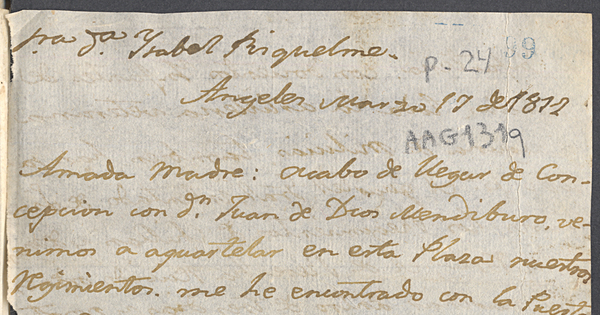 Sra Da. Ysabel Riquelme.
p. 24 89
Angeles Marzo 17 de 1812
AAG1319
Amada Madre: acabo de llegar de Con-
cepcion con dn. Juan de Dios Mendiburo, ve-
nimos a aquartelar en esta Plaza nuestros
Regimientos. me he encontrado con la Puerta